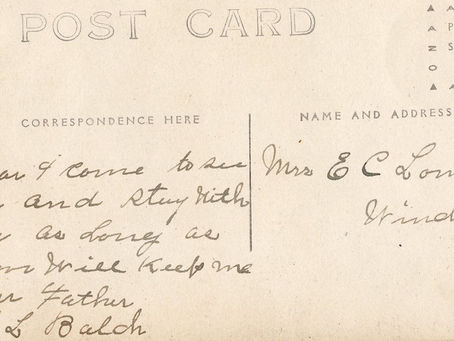 POST CARD
CORRESPONDENCE HERE
NAME AND ADDRESS
I come to see
and Stay With
as Long as
Will Keep me
Father
L Balch
Mrs E C Lom
Wind